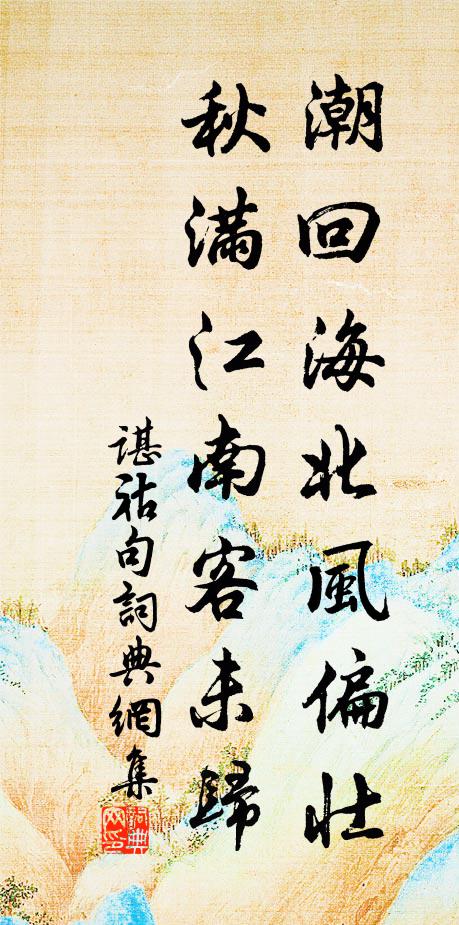 潮回海北風偏壮
秋滿江南客未歸
谌祜句詞典網集
詞典